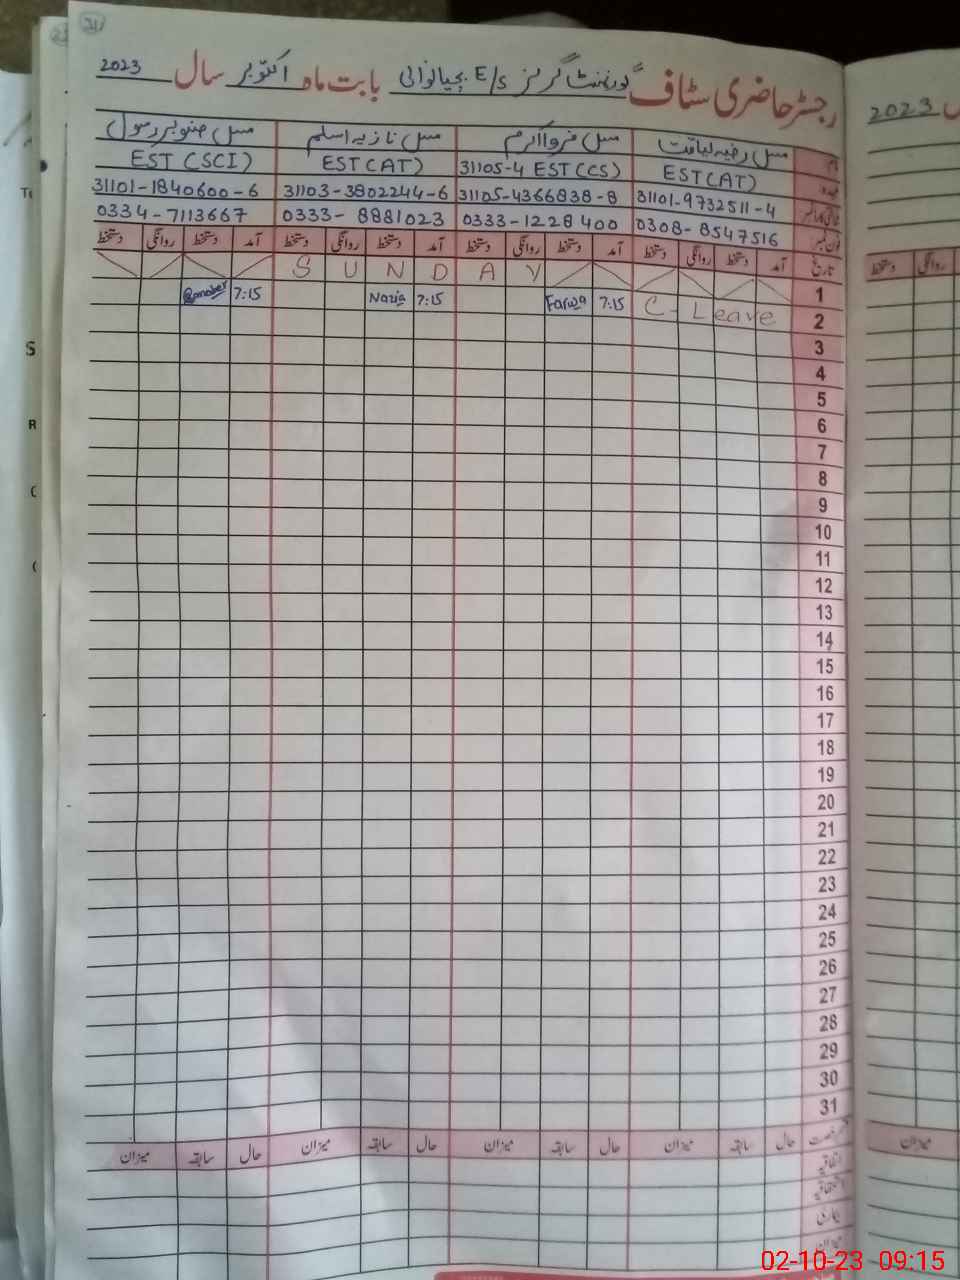 رجسٹر حاضری سٹاف گورنمنٹ گرلز E/S بچیانوالی بابت ماہ اکتوبر سال 2023
نام مس رضیہ لیاقت مس فروا اکرم مس نازیہ اسلم مس صنوبر رسول
عہدہ EST(AT) 31105-4 EST(CS) EST(AT) EST(SCI)
31101-9732511-4 31105-4366838-8 31103-3802244-6 31101-1840600-6
فون نمبر 0308-8547516 0333-1228400 0333-8881023 0334-7113667
تاریخ آمد دستخط روانگی دستخط آمد دستخط روانگی دستخط آمد دستخط روانگی دستخط آمد دستخط روانگی دستخط
1 SUNDAY
2 C-Leave 7:15 Farwa 7:15 Nazia 7:15
3
4
5
6
7
8
9
10
11
12
13
14
15
16
17
18
19
20
21
22
23
24
25
26
27
28
29
30
31
رخصت حال سابقہ میزان حال سابقہ میزان حال سابقہ میزان حال سابقہ میزان
اتفاقیہ
استحقاقیہ
بیماری
میزان
2023
دستخط روانگی
میزان
02-10-23 09:15